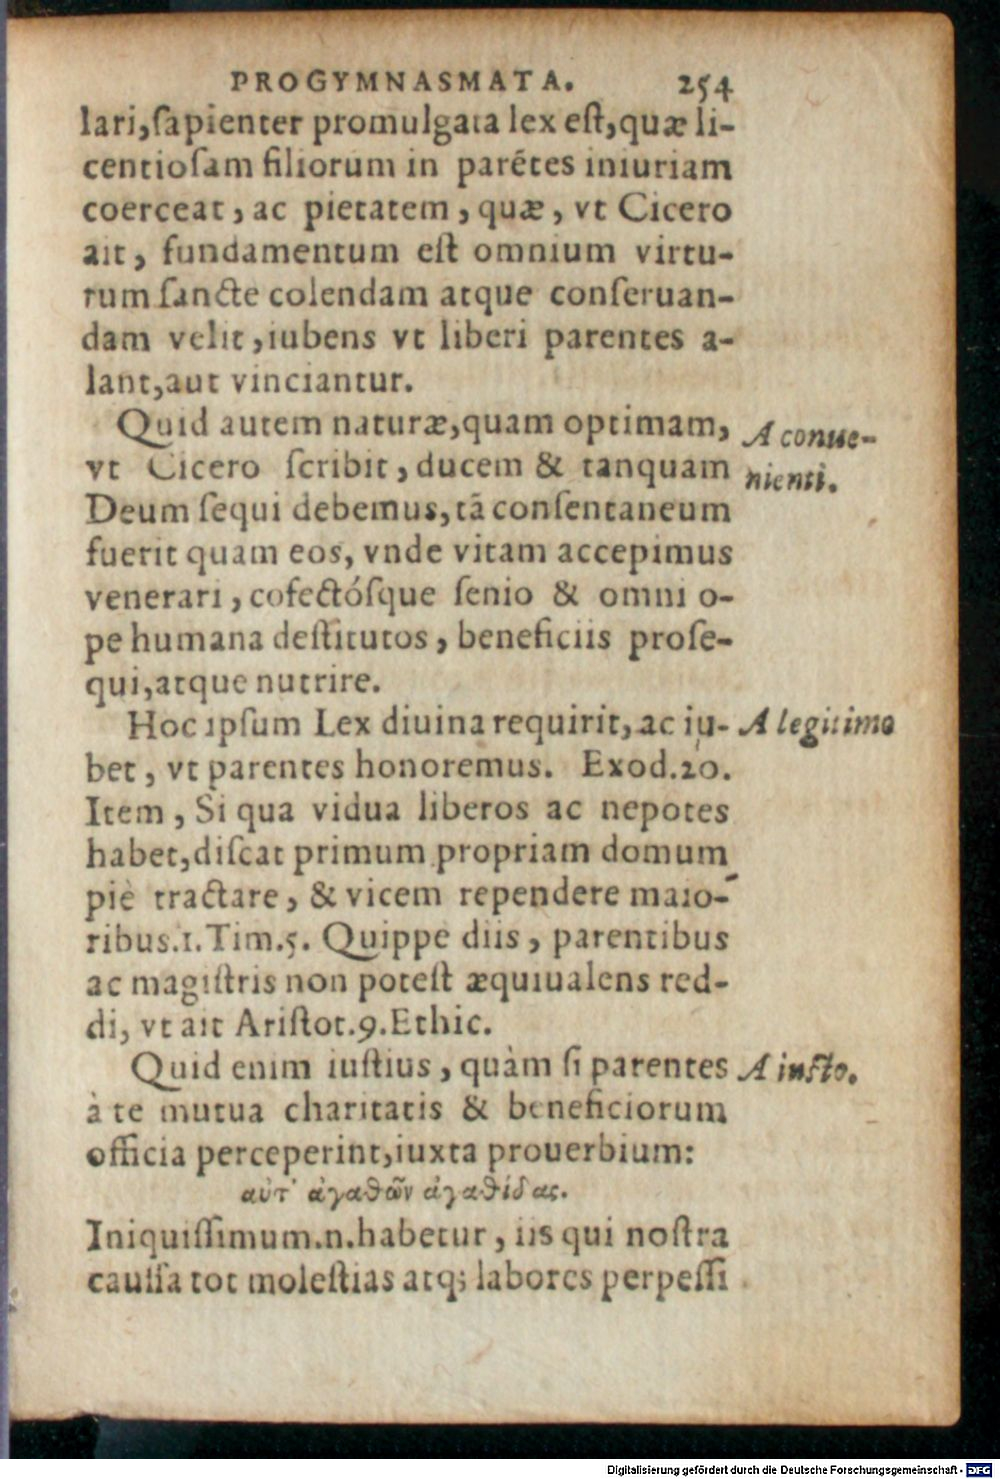 PROGYMNASMATA. 254
lari,ſapienter promulgata lex eſt,quæ li-
centioſam filiorum in parẽtes iniuriam
coerceat, ac pietatem, quæ, vt Cicero
ait, fundamentum eſt omnium virtu-
tum ſancte colendam atque conſeruan-
dam velit,iubens vt liberi parentes a-
lant,aut vinciantur.
Quid autem naturæ,quam optimam, A conue-
vt Cicero ſcribit, ducem & tanquam nienti.
Deum ſequi debemus,tã conſentaneum
fuerit quam eos, vnde vitam accepimus
venerari, cofectóſque ſenio & omni o-
pe humana deſtitutos, beneficiis proſe-
qui,atque nutrire.
Hoc ipſum Lex diuina requirit, ac iu- A legitimo
bet, vt parentes honoremus. Exod.20.
Item, Si qua vidua liberos ac nepotes
habet,diſcat primum propriam domum
piè tractare, & vicem rependere maio-
ribus.1.Tim.5. Quippe diis, parentibus
ac magiſtris non poteſt æquiualens red-
di, vt ait Ariſtot.9.Ethic.
Quid enim iuſtius, quàm ſi parentes A iuſto.
à te mutua charitatis & beneficiorum
officia perceperint,iuxta prouerbium:
αὐτ' ἀγαθῶν ἀγαθίδας.
Iniquiſſimum.n.habetur, iis qui noſtra
cauſſa tot moleſtias atq; labores perpeſſi
Digitalisierung gefördert durch die Deutsche Forschungsgemeinschaft - DFG